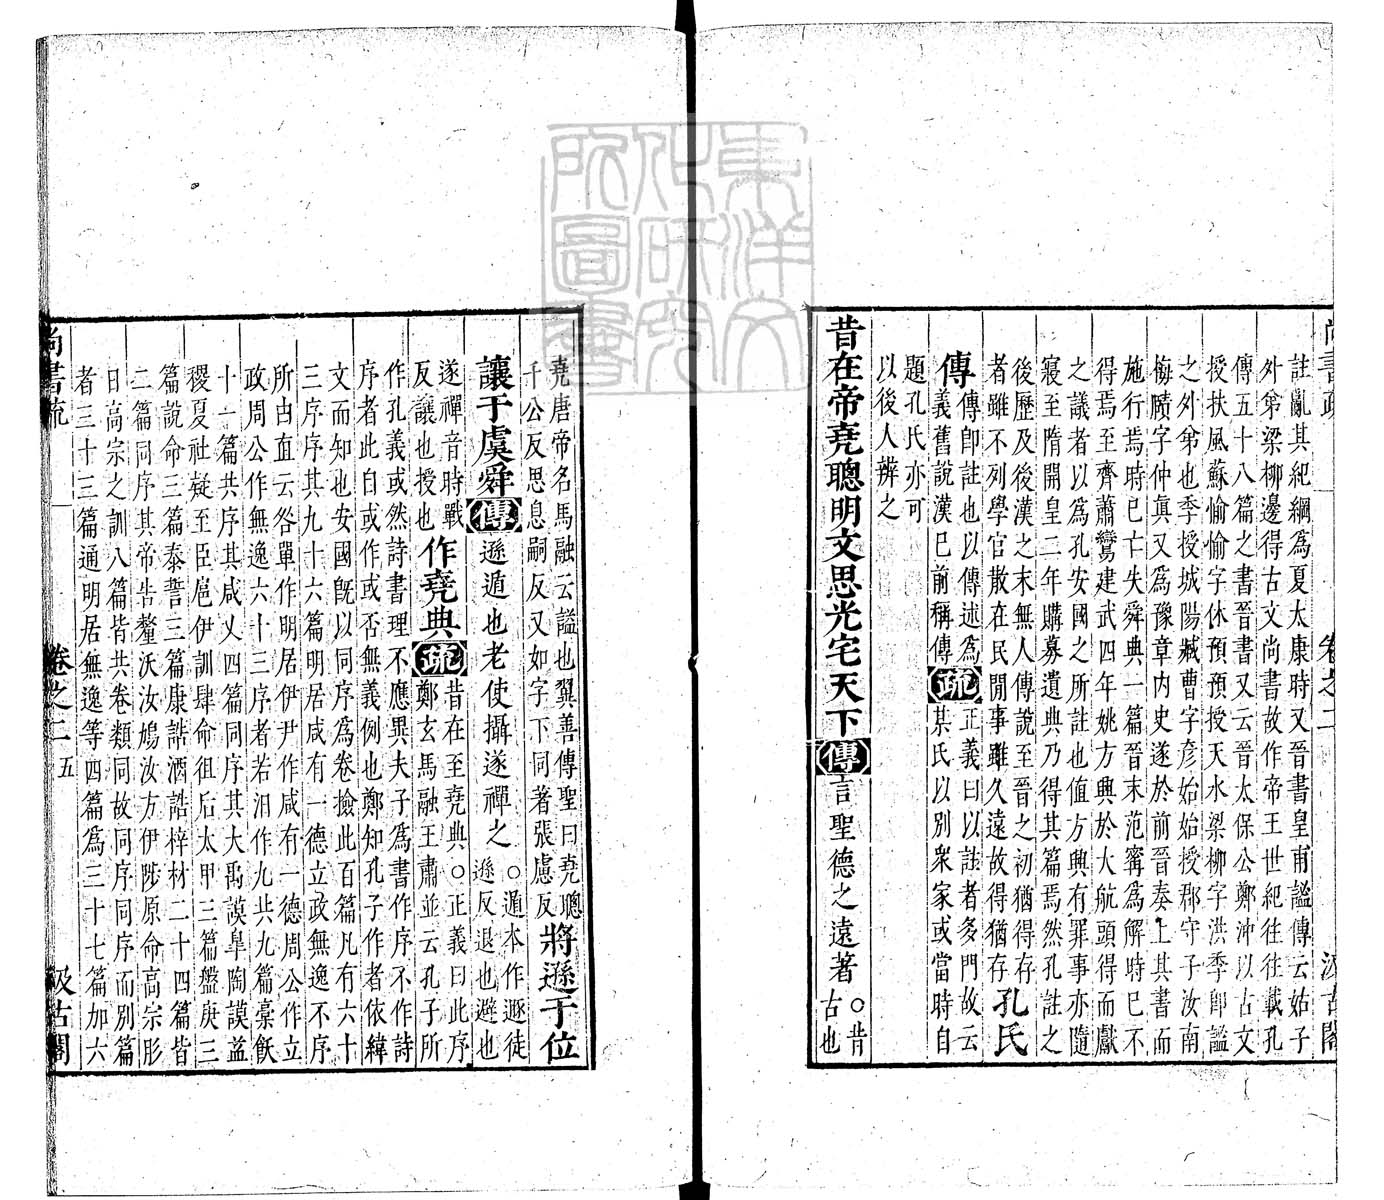 尚書疏　卷之二　汲古閣
註亂其紀綱爲夏太康時又晉書皇甫謐傳云姑子
外弟梁柳邊得古文尚書故作帝王世紀往往載孔
傳五十八篇之書晉書又云晉太保公鄭沖以古文
授扶風蘇愉愉字休預預授天水梁柳字洪季卽謐
之外弟也季授城陽臧曹字彥始始授郡守子汝南
梅賾字仲眞又爲豫章內史遂於前晉奏上其書而
施行焉時已亡失舜典一篇晉末范甯爲解時已不
得焉至齊蕭鸞建武四年姚方興於大航頭得而獻
之議者以爲孔安國之所註也値方興有罪事亦隨
寢至隋開皇二年購募遺典乃得其篇焉然孔註之
後歷及後漢之末無人傳說至晉之初猶得存
者雖不列學官散在民閒事雖久遠故得猶存
孔氏
傳
傳卽註也以傳述爲
義舊說漢已前稱傳
疏
正義曰以註者多門故云
某氏以別衆家或當時自
題孔氏亦可
以後人辨之
昔在帝堯聰明文思光宅天下傳言聖德之遠著
○昔
古也
堯唐帝名馬融云謚也翼善傳聖曰堯聰
千公反思息嗣反又如字下同著張慮反
將遜于位
讓于虞舜傳遜遁也老使攝遂禪之
○遁本作遯徒
遜反退也避也
遂禪音時戰
反讓也授也
作堯典疏
昔在至堯典○正義曰此序
鄭玄馬融王肅並云孔子所
作孔義或然詩書理不應異夫子爲書作序不作詩
序者此自或作或否無義例也鄭知孔子作者依緯
文而知也安國旣以同序爲卷撿此百篇凡有六十
三序序其九十六篇明居咸有一德立政無逸不序
所由直云咎單作明居伊尹作咸有一德周公作立
政周公作無逸六十三序者若汨作九共九篇稾飫
十一篇共序其咸乂四篇同序其大禹謨皐陶謨益
稷夏社疑至臣扈伊訓肆命徂后太甲三篇盤庚三
篇說命三篇泰誓三篇康誥酒誥梓材二十四篇皆
二篇同序其帝告釐沃汝鳩汝方伊陟原命高宗肜
日高宗之訓八篇皆共卷類同故同序同序而別篇
者三十三篇通明居無逸等四篇爲三十七篇加六
尚書疏　卷之二　五　汲古閣
東洋文化研究所圖書